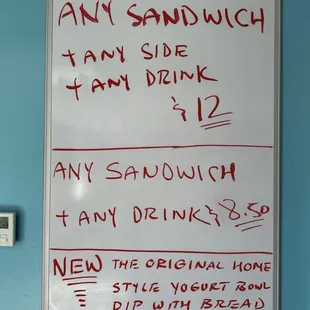 ANY SANDWICH
+ ANY SIDE
+ ANY DRINK
$12
ANY SANDWICH
+ ANY DRINK $8.50
NEW THE ORIGINAL HOME
STYLE YOGURT BOWL
DIP WITH BREAD